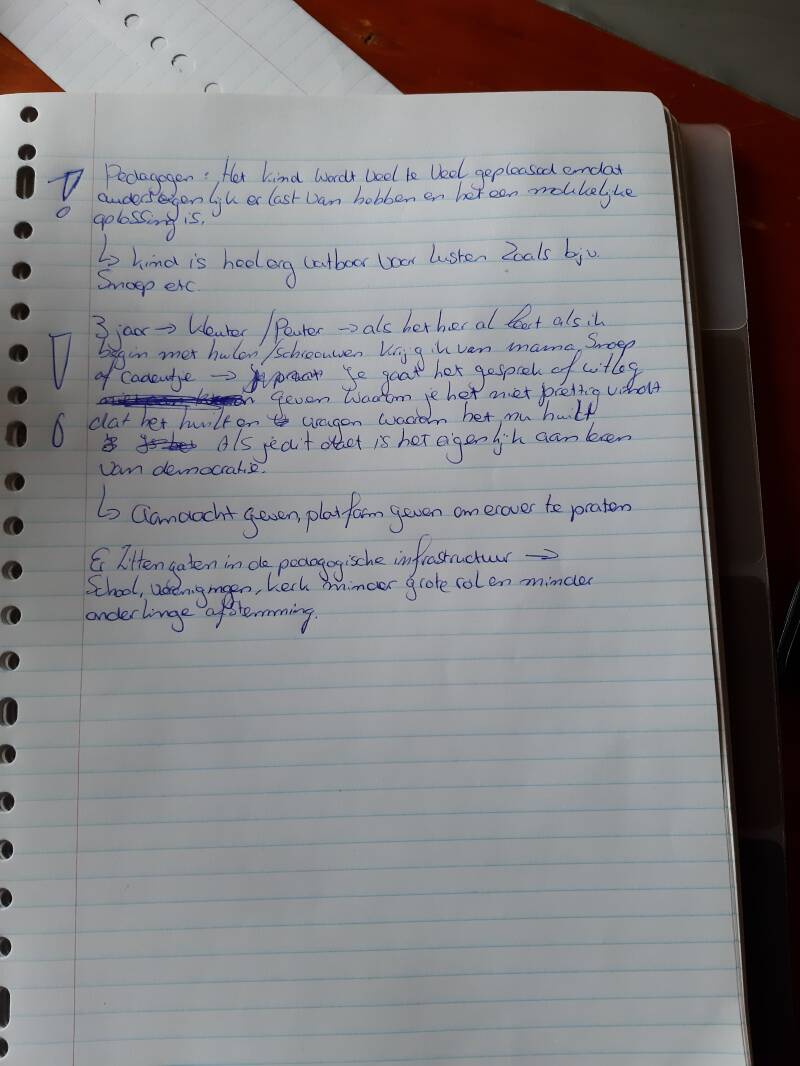 ! Pedagogen: Het kind wordt veel te veel gepleased omdat
ouders eigenlijk er last van hebben en het een makkelijke
oplossing is.
↳ kind is heel erg vatbaar voor lusten zoals bijv.
Snoep etc.
! 3 jaar → kleuter/Peuter → als het hier al leert als ik
begin met huilen/schreeuwen krijg ik van mama snoep
of cadeautje → Je gaat het gesprek of uitleg
geven waarom je het niet prettig vindt
dat het huilt en vragen waarom het nu huilt
Als je dit doet is het eigenlijk aan leren
van democratie.
↳ Aandacht geven, platform geven om erover te praten
Er zitten gaten in de pedagogische infrastructuur →
School, verenigingen, kerk minder grote rol en minder
onderlinge afstemming.